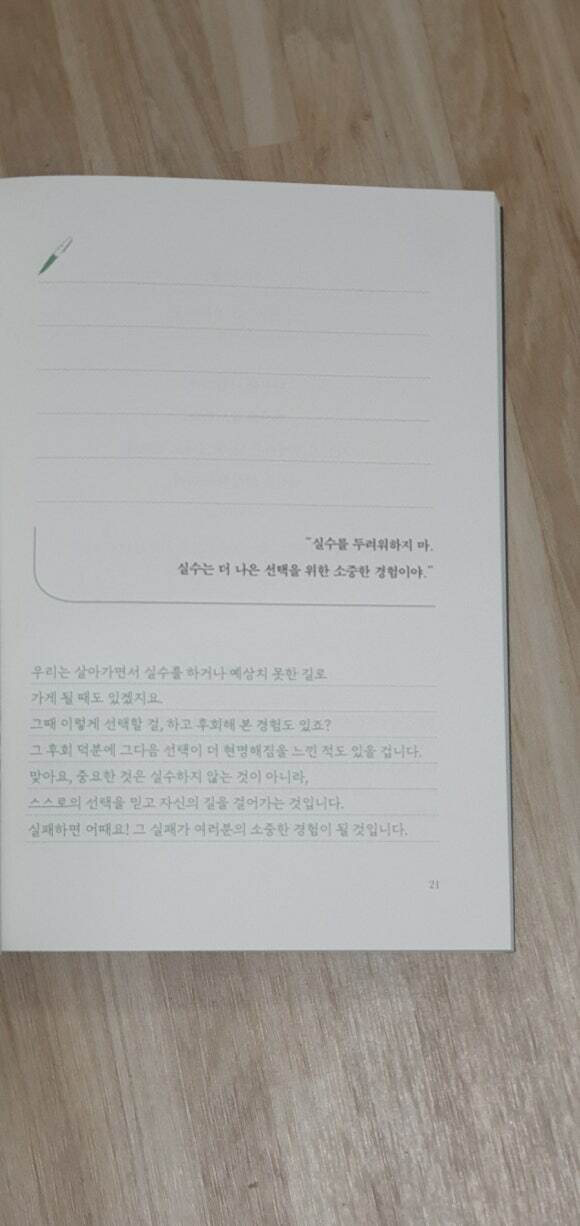 "실수를 두려워하지 마.
실수는 더 나은 선택을 위한 소중한 경험이야."
우리는 살아가면서 실수를 하거나 예상치 못한 길로
가게 될 때도 있겠지요.
그때 이렇게 선택할 걸, 하고 후회해 본 경험도 있죠?
그 후회 덕분에 그다음 선택이 더 현명해짐을 느낀 적도 있을 겁니다.
맞아요, 중요한 것은 실수하지 않는 것이 아니라,
스스로의 선택을 믿고 자신의 길을 걸어가는 것입니다.
실패하면 어때요! 그 실패가 여러분의 소중한 경험이 될 것입니다.
21